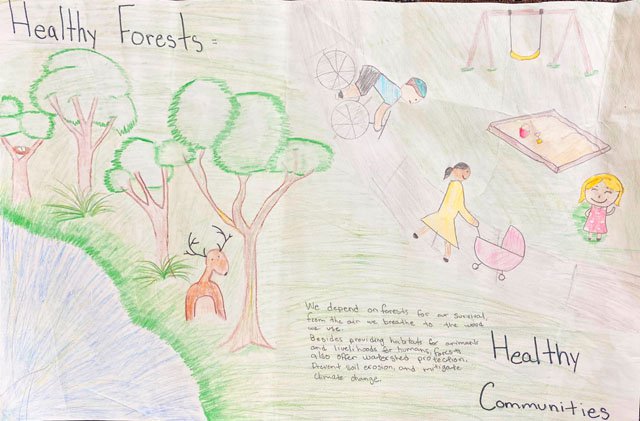 Healthy Forests =
We depend on forests for our survival,
from the air we breathe to the wood
we use.
Besides providing habitats for animals
and livelihoods for humans, forests
also offer watershed protection,
prevent soil erosion, and mitigate
climate change.
Healthy
Communities